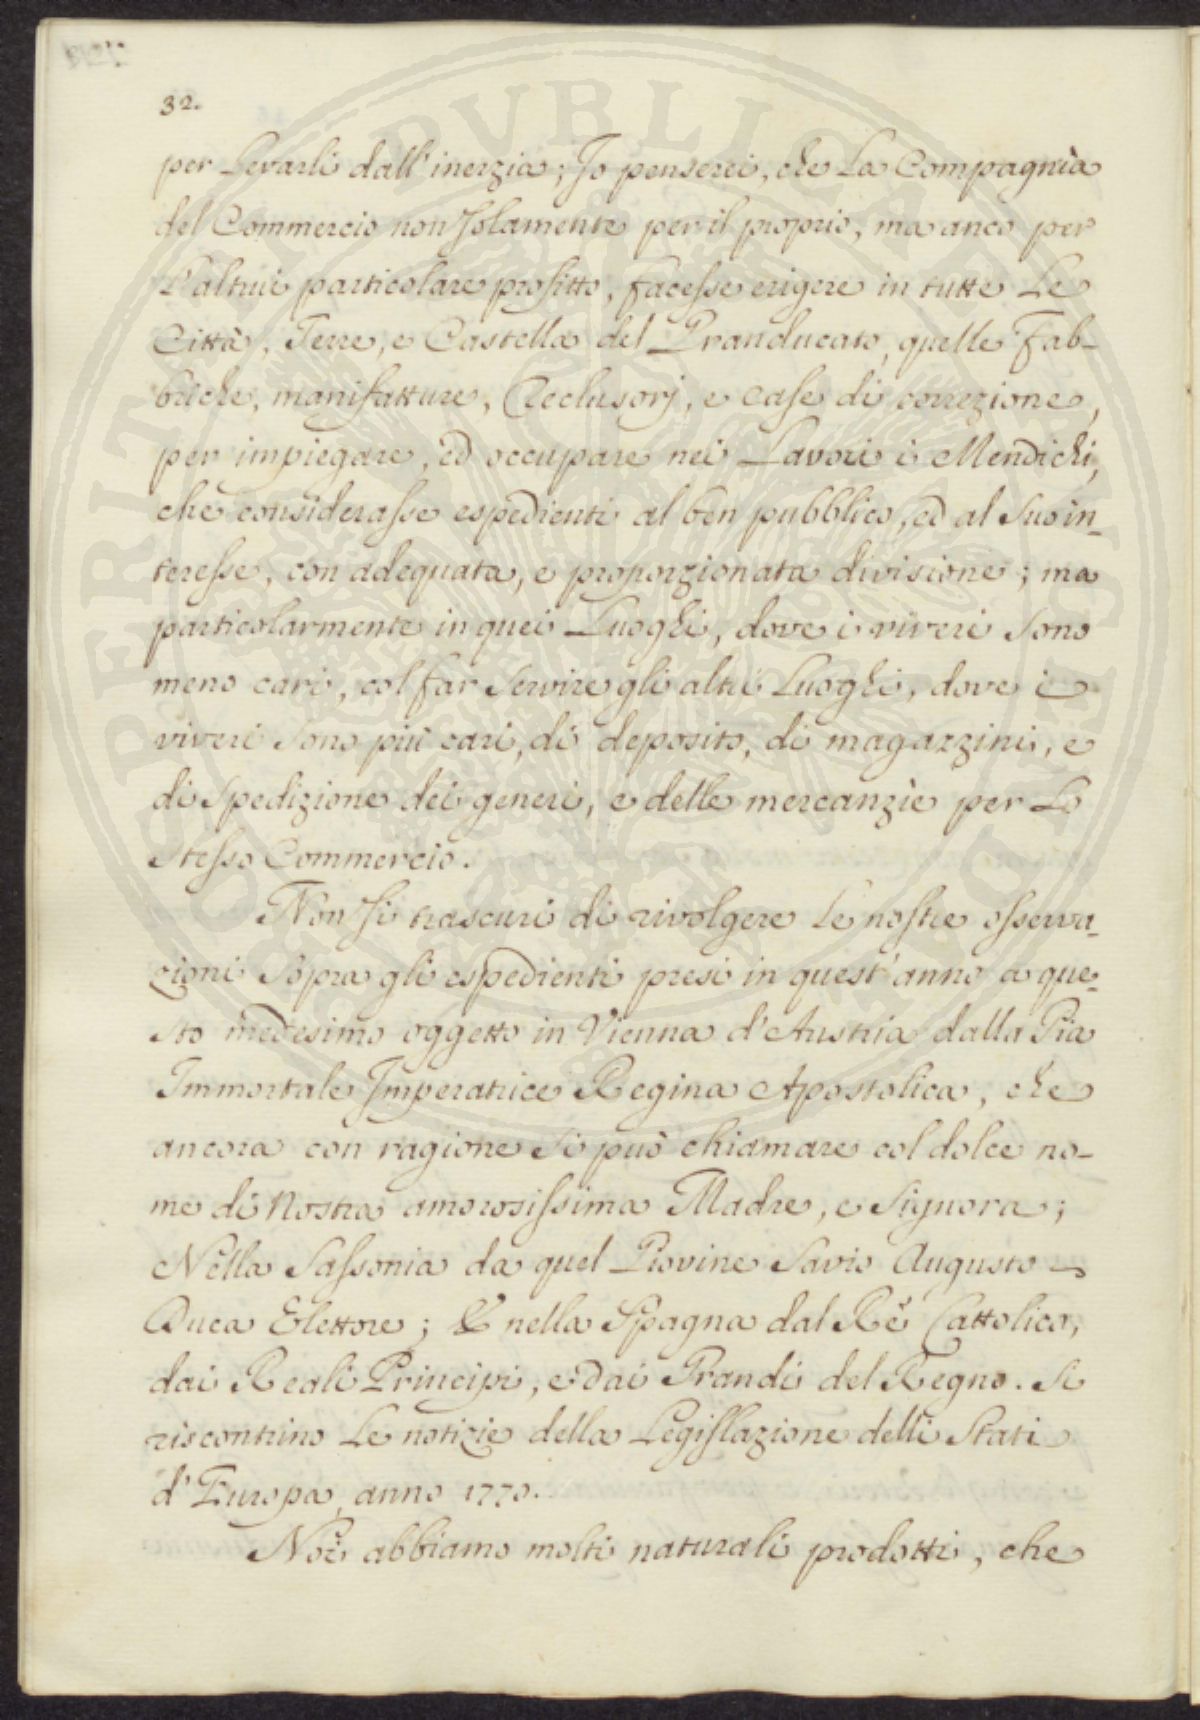 32.
per Levarli dall'inerzia; Jo penserei, che La Compagnìa
del Commercio non Solamente per il proprio, ma anco per
l'altrui particolare profitto, facesse erigere in tutte Le
Città, Terre, e Castella del Granducato, quelle Fab-
briche, manifatture, Reclusorj, e Case di correzione,
per impiegare, ed occupare nei Lavori i Mendichi,
che considerasse espedienti al ben pubblico, ed al Suo in-
teresse, con adequata, e proporzionata divisione; ma
particolarmente in quei Luoghi, dove i viveri Sono
meno cari, col far Servire gli altri Luoghi, dove i
viveri Sono più cari, di deposito, di magazzini, e
di Spedizione dei generi, e delle mercanzìe per Lo
Stesso Commercio.
Non Si trascuri di rivolgere Le nostre osserva-
zioni Sopra gli espedienti presi in quest'anno a que-
sto medesimo oggetto in Vienna d'Austria dalla Pia
Immortale Imperatrice Regina Apostolica, che
ancora con ragione Si può chiamare col dolce no-
me di Nostra amorosissima Madre, e Signora;
Nella Sassonia da quel Giovine Savio Augusto
Duca Elettore; E nella Spagna dal Rè Cattolico,
dai Reali Principi, e dai Grandi del Regno. Si
riscontrino Le notizie della Legislazione delli Stati
d'Europa, anno 1770.
Noi abbiamo molti naturali prodotti, che
PUBLICAE
PROSPERITATI